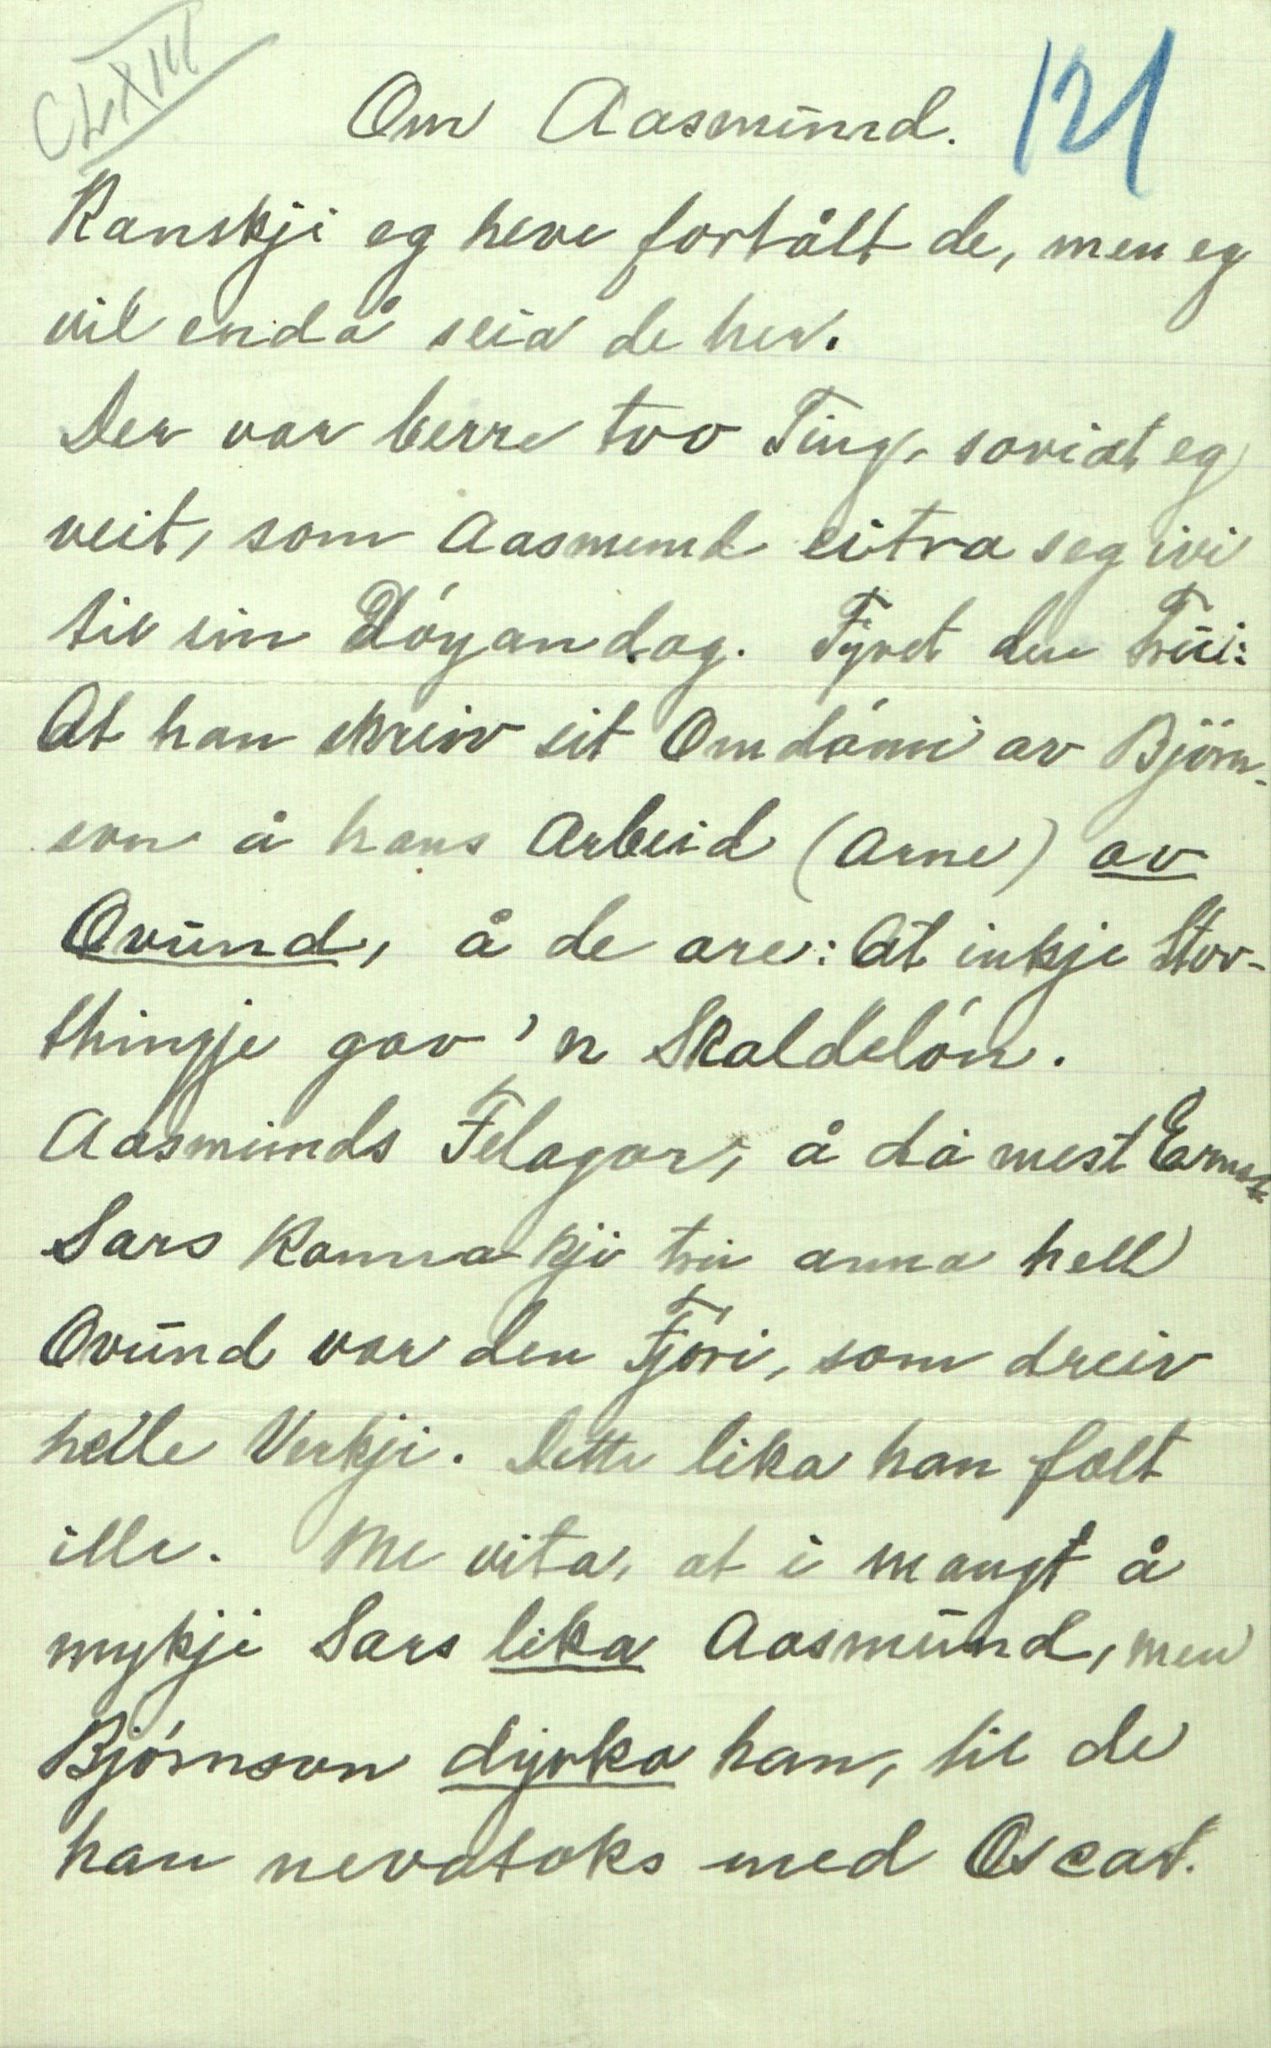 CLXIII
121
Om Aasmund.
Kanskji eg heve fortålt de, men eg
vil endå seia de her.
Der var berre tvo Ting, sovidt eg
veit, som Aasmund eitra seg ivi
til sin Döyandag. Fyret den Trui:
At han skreiv sit Omdömi av Björn-
son å hans Arbeid (Arne) av
Ovund, å de are: At inkje Stor-
thingje gav 'n Skaldelön.
Aasmunds Felagar, å då mest Ernst
Sars kunna kji tru anna hell
Ovund var den Fjöri, som dreiv
heile Verkji. Dette lika han fælt
ille. Me vita, at i mangt å
mykji Sars lika Aasmund, men
Björnson dyrka han, til de
han nevatoks med Oscar.